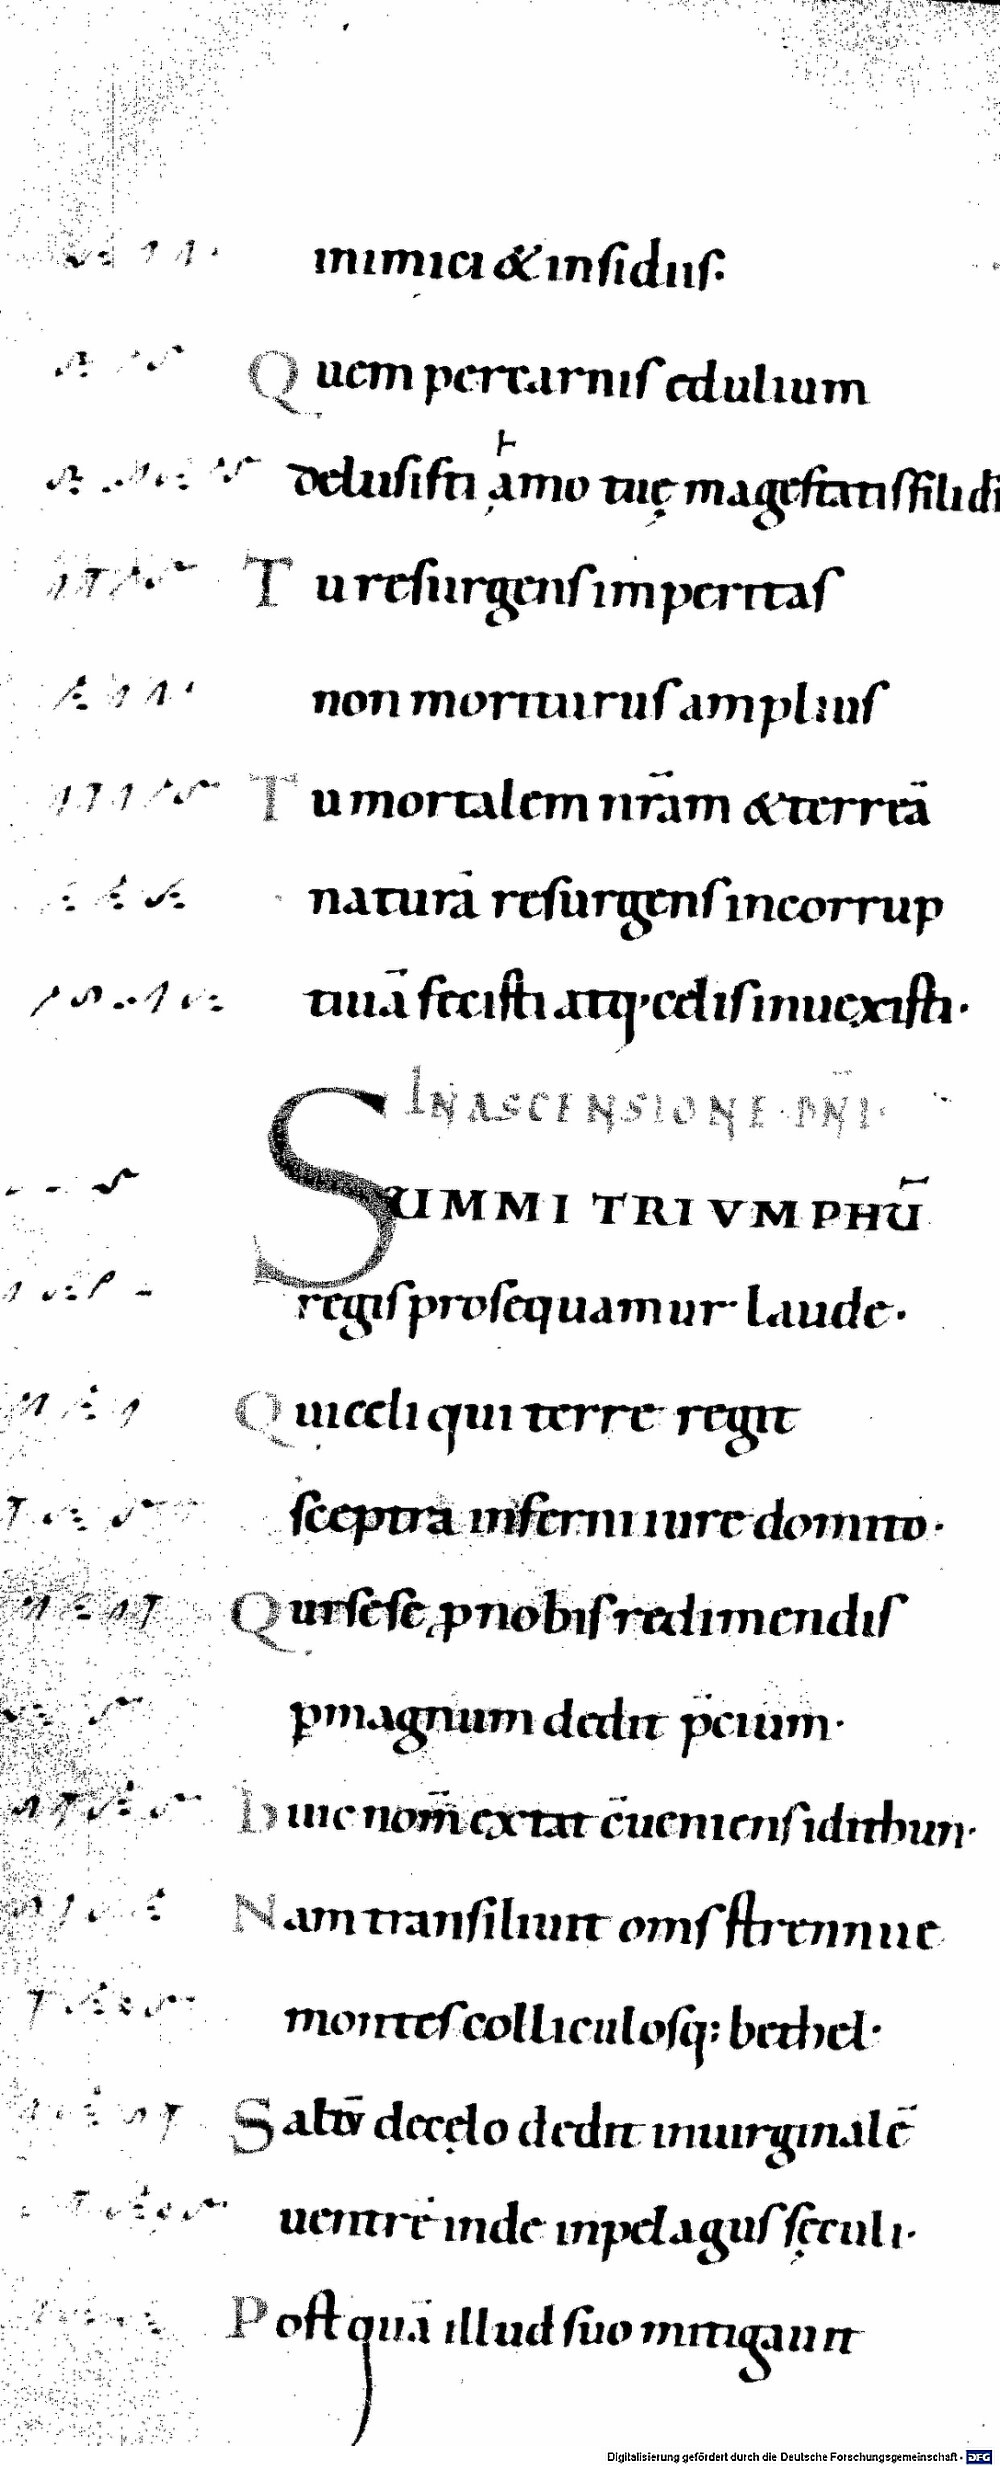 inimici & insidiis.
Quem per carnis edulium
delusisti amo tuę magestatis fili di
Tu resurgens imperitas
non moriturus amplius
Tu mortalem nr̄am & terreā
naturā resurgens incorrup
tiuā fecisti atq· celis inuexisti·
IN ASCENSIONE · DN̄I·
SUMMI TRIVMPHŪ
regis prosequamur laude.
Qui celi qui terre regit
sceptra inferni iure domito·
Qui sese p nobis redimendis
p magnum dedit p̄cium·
Huic nom̄ extat c̄ueniens idithun·
Nam transiliuit om̄s strennue
montes colliculosq: bethel·
Saltū de cęlo dedit in uirginalē
uentrē inde in pelagus sęculi·
Postquā illud suo mitigauit
Digitalisierung gefördert durch die Deutsche Forschungsgemeinschaft - DFG